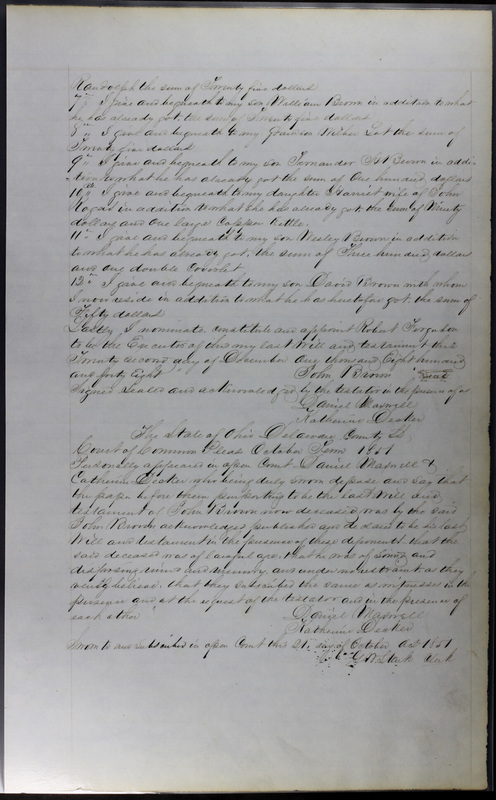 Randolph the sum of Twenty five dollars
7th I give and bequeath to my son William Brown in addition to what
he has already got, the sum of Twenty five dollars
8th I give and bequeath to my Grandson the sum of
Twenty five dollars
9th I give and bequeath to my son Fernander Brown in addi-
tion to what he has already got the sum of One hundred dollars
10th I give and bequeath to my daughter Harriet wife of John
in addition to what she has already got, the sum of Ninety
dollars and One large Copper Kettle.
11th I give and bequeath to my son Wesley Brown in addition
to what he has already got, the sum of Three hundred dollars
and one double Coverlet.
12th I give and bequeath to my son David Brown with whom
I now reside in addition to what he has heretofore got the sum of
Fifty dollars
Lastly I nominate constitute and appoint Robert Ferguson
to be the Executor of this my last Will and testament this
Twenty second day of December One thousand Eight hundred
and forty Eight John Brown Seal
Signed Sealed and acknowledged, by the testator in the presence of us
Daniel Maxwell
Katherine Decker
The State of Ohio Delaware County Ss,
Court of Common Pleas October Term 1851
Personally appeared in open Court Daniel Maxwell &
Catherine Decker who being duly sworn depose and say that
the paper before them purporting to be the last Will and
testament of John Brown now deceased, was by the said
John Brown acknowledged published and to be his last
Will and testament in the presence of these deponents that the
said deceased was of lawful age, that he was of sound and
disposing mind and memory, and under no restraint as they
verily believe. that they subscribed the same as witnesses in the
presence and at the request of the testator and in the presence of
each other Daniel Maxwell
Katherine Decker
Sworn to and subscribed in open Court this 21st day of October AD 1851
Stark Clerk